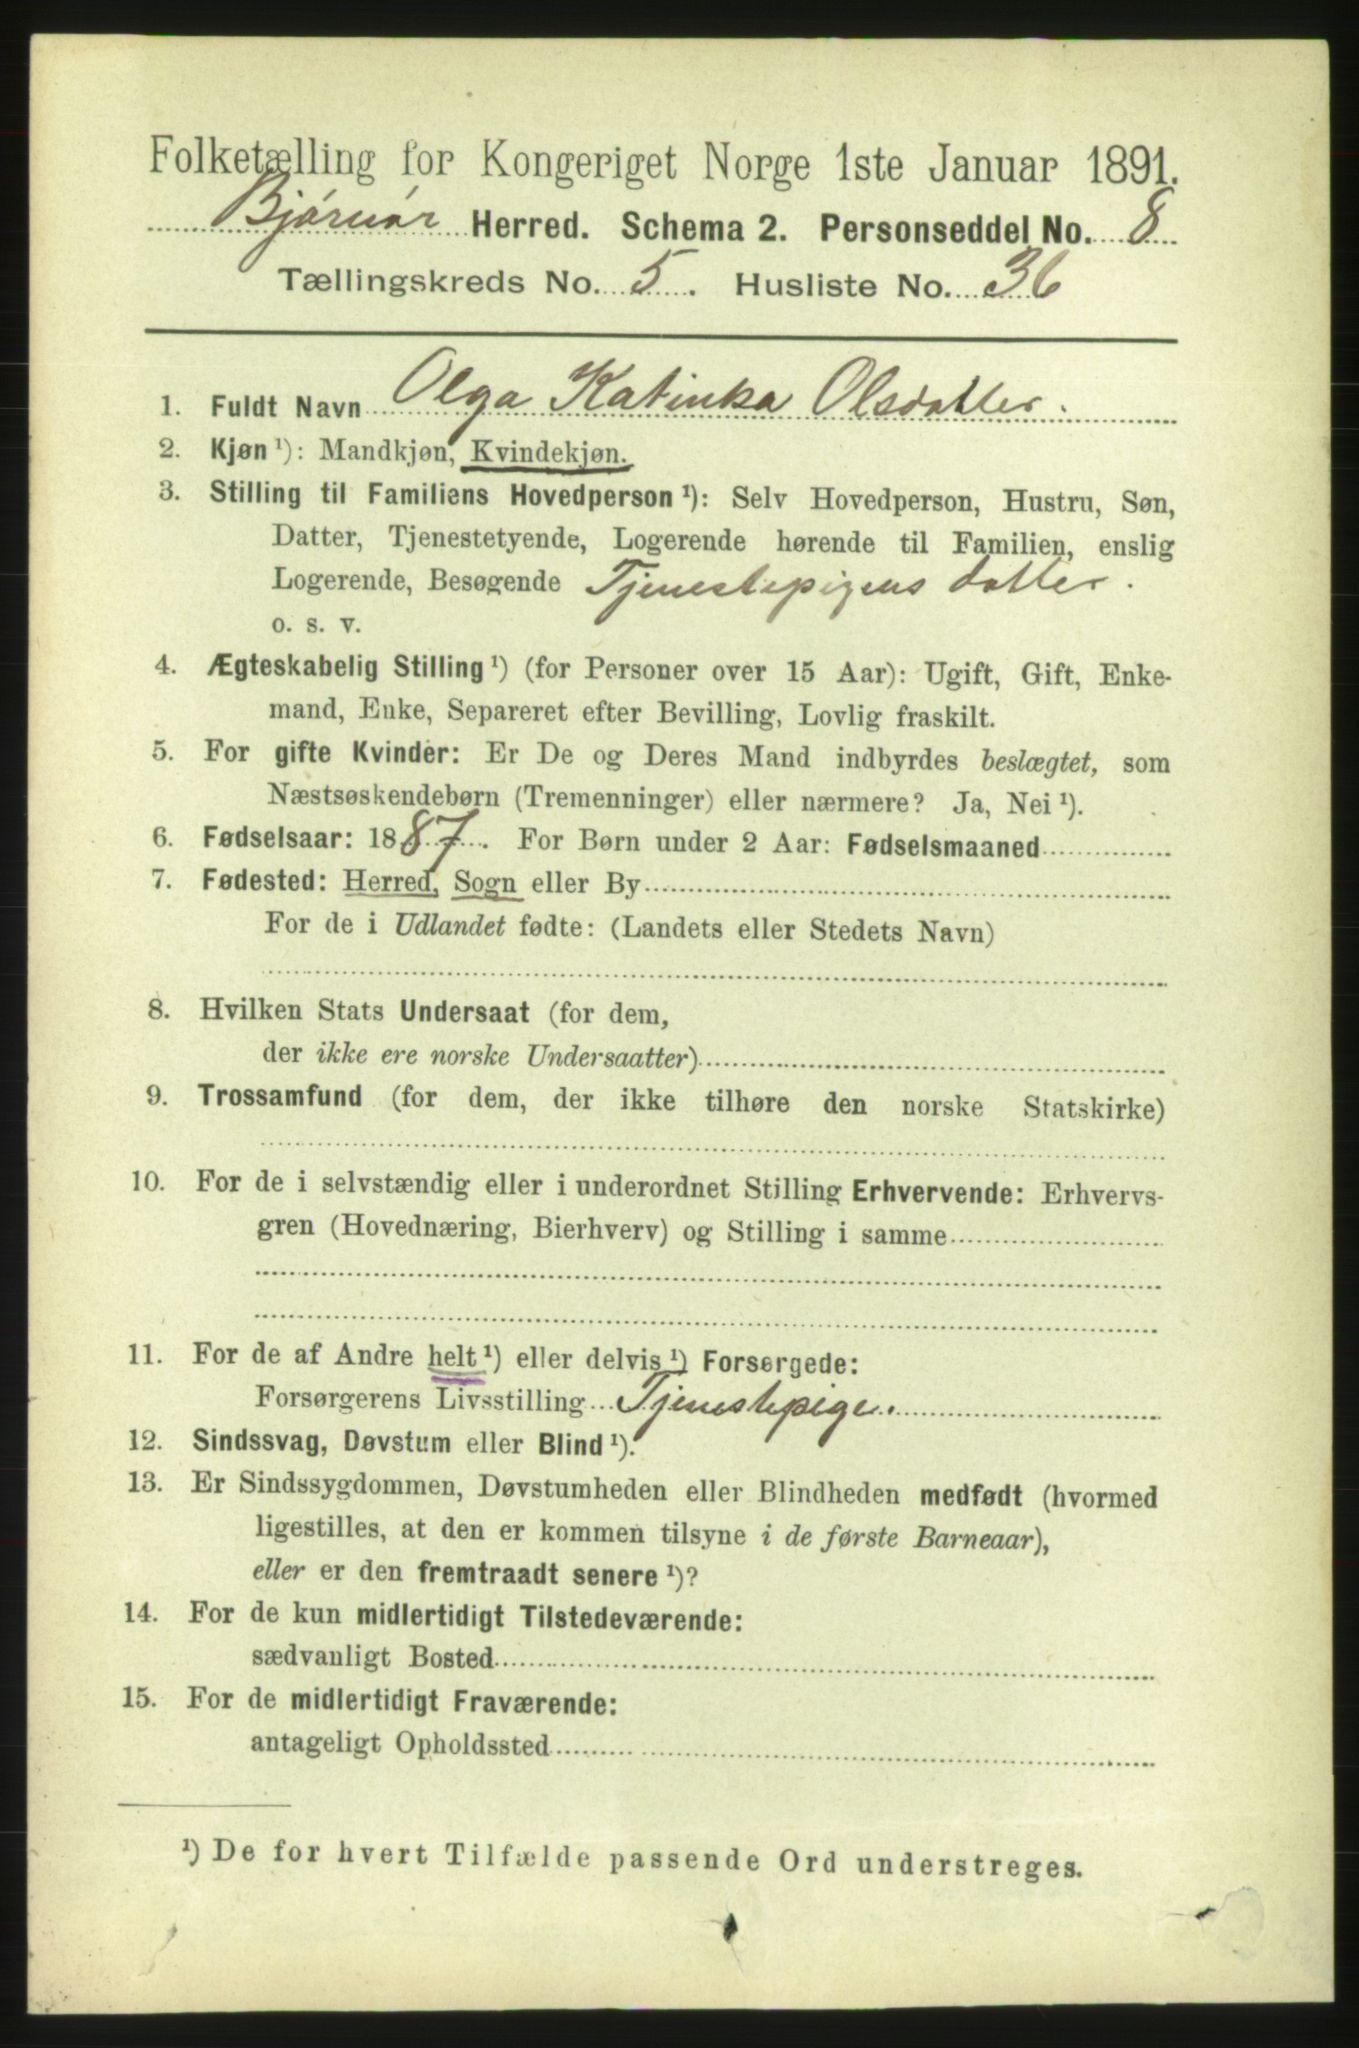 Folketælling for Kongeriget Norge 1ste Januar 1891.
Bjørnør Herred. Schema 2. Personseddel No. 8
Tællingskreds No. 5. Husliste No. 36
1. Fuldt Navn Olga Katinka Olsdatter.
2. Kjøn ¹): Mandkjøn, Kvindekjøn.
3. Stilling til Familiens Hovedperson ¹): Selv Hovedperson, Hustru, Søn,
Datter, Tjenestetyende, Logerende hørende til Familien, enslig
Logerende, Besøgende Tjenestepigens datter.
o. s. v.
4. Ægteskabelig Stilling ¹) (for Personer over 15 Aar): Ugift, Gift, Enke-
mand, Enke, Separeret efter Bevilling, Lovlig fraskilt.
5. For gifte Kvinder: Er De og Deres Mand indbyrdes beslægtet, som
Næstsøskendebørn (Tremenninger) eller nærmere? Ja, Nei ¹).
6. Fødselsaar: 1887. For Børn under 2 Aar: Fødselsmaaned
7. Fødested: Herred, Sogn eller By
For de i Udlandet fødte: (Landets eller Stedets Navn)
8. Hvilken Stats Undersaat (for dem,
der ikke ere norske Undersaatter)
9. Trossamfund (for dem, der ikke tilhøre den norske Statskirke)
10. For de i selvstændig eller i underordnet Stilling Erhvervende: Erhvervs-
gren (Hovednæring, Bierhverv) og Stilling i samme
11. For de af Andre helt ¹) eller delvis ¹) Forsørgede:
Forsørgerens Livsstilling Tjenestepige.
12. Sindssvag, Døvstum eller Blind ¹).
13. Er Sindssygdommen, Døvstumheden eller Blindheden medfødt (hvormed
ligestilles, at den er kommen tilsyne i de første Barneaar),
eller er den fremtraadt senere ¹)?
14. For de kun midlertidigt Tilstedeværende:
sædvanligt Bosted
15. For de midlertidigt Fraværende:
antageligt Opholdssted
¹) De for hvert Tilfælde passende Ord understreges.